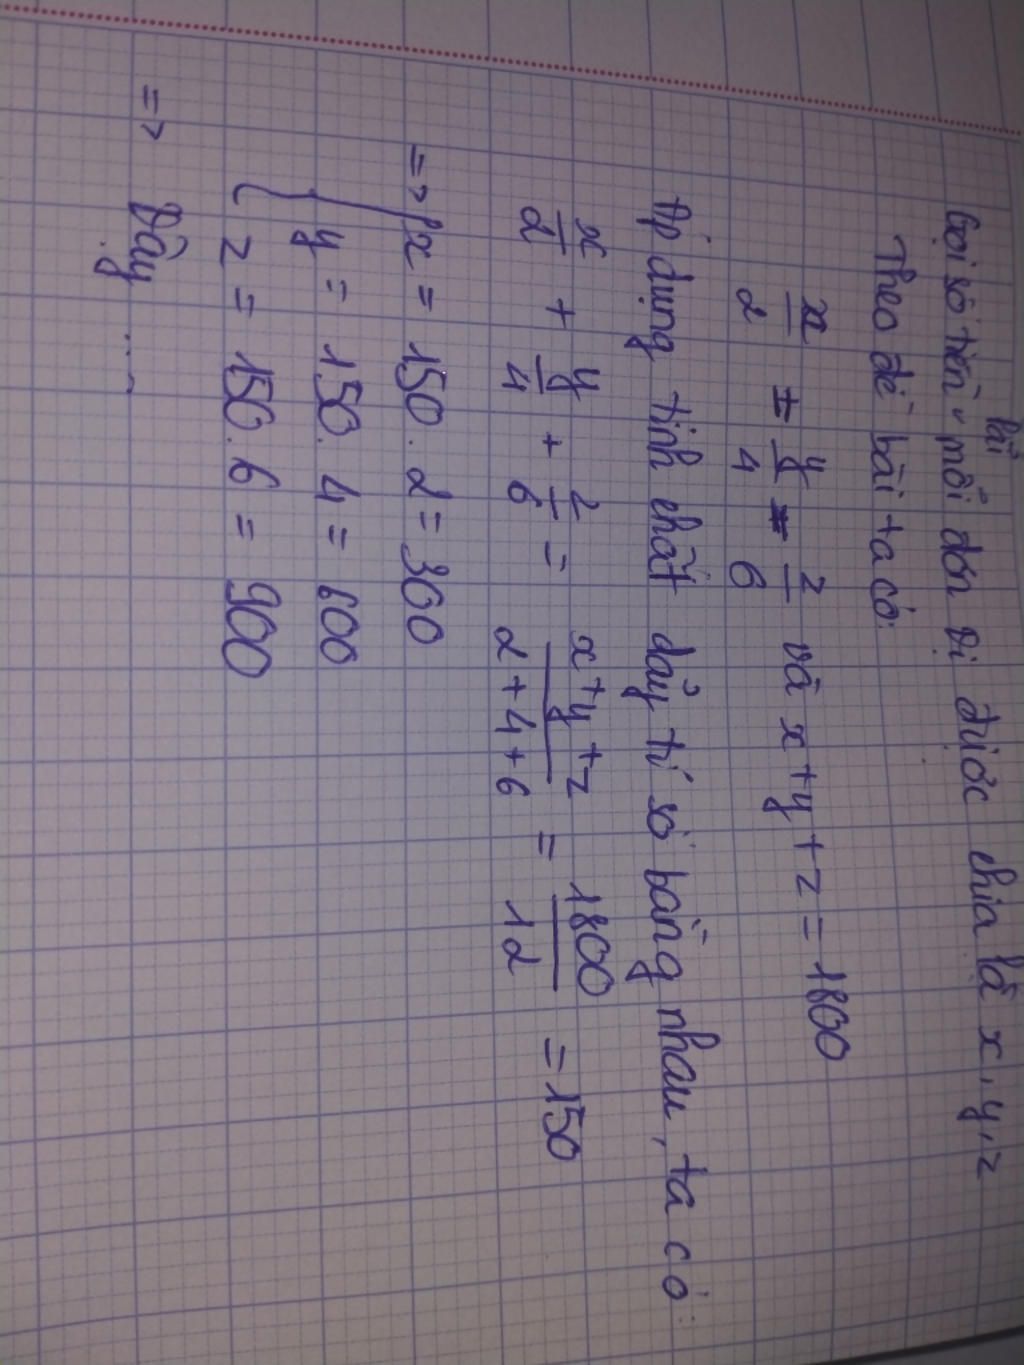 lãi
Gọi số tiền mỗi đơn vị được chia là x, y, z
Theo đề bài ta có:
x/2 = y/4 = z/6 và x + y + z = 1800
Áp dụng tính chất dãy tỉ số bằng nhau, ta có
x/2 + y/4 + z/6 = x+y+z/2+4+6 = 1800/12 = 150
=> { x = 150 . 2 = 300
y = 150 . 4 = 600
z = 150 . 6 = 900
=> Vậy ...